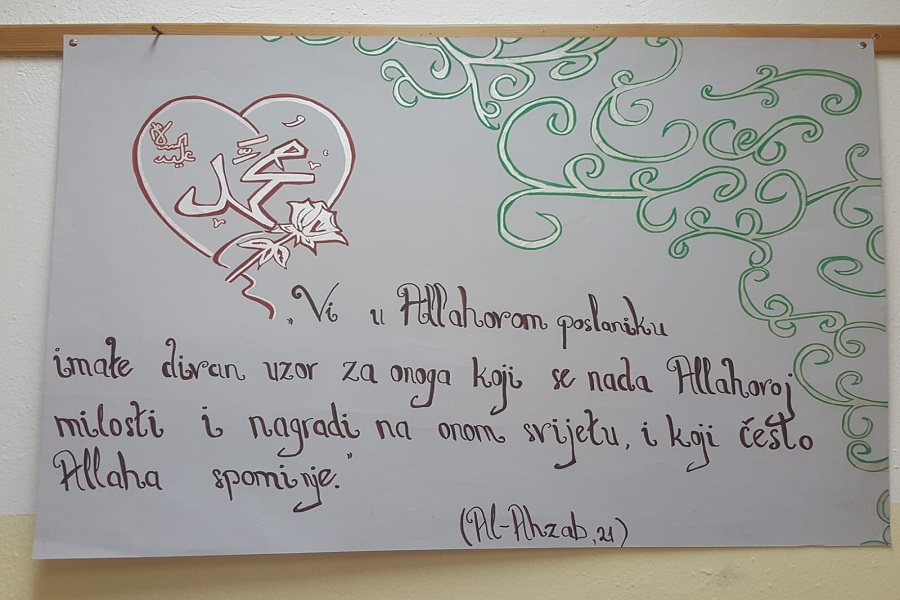 محمد
عليه السلام
„Vi u Allahovom poslaniku
imate divan uzor za onoga koji se nada Allahovoj
milosti i nagradi na onom svijetu, i koji često
Allaha spominje.”
(Al-Ahzab, 21)